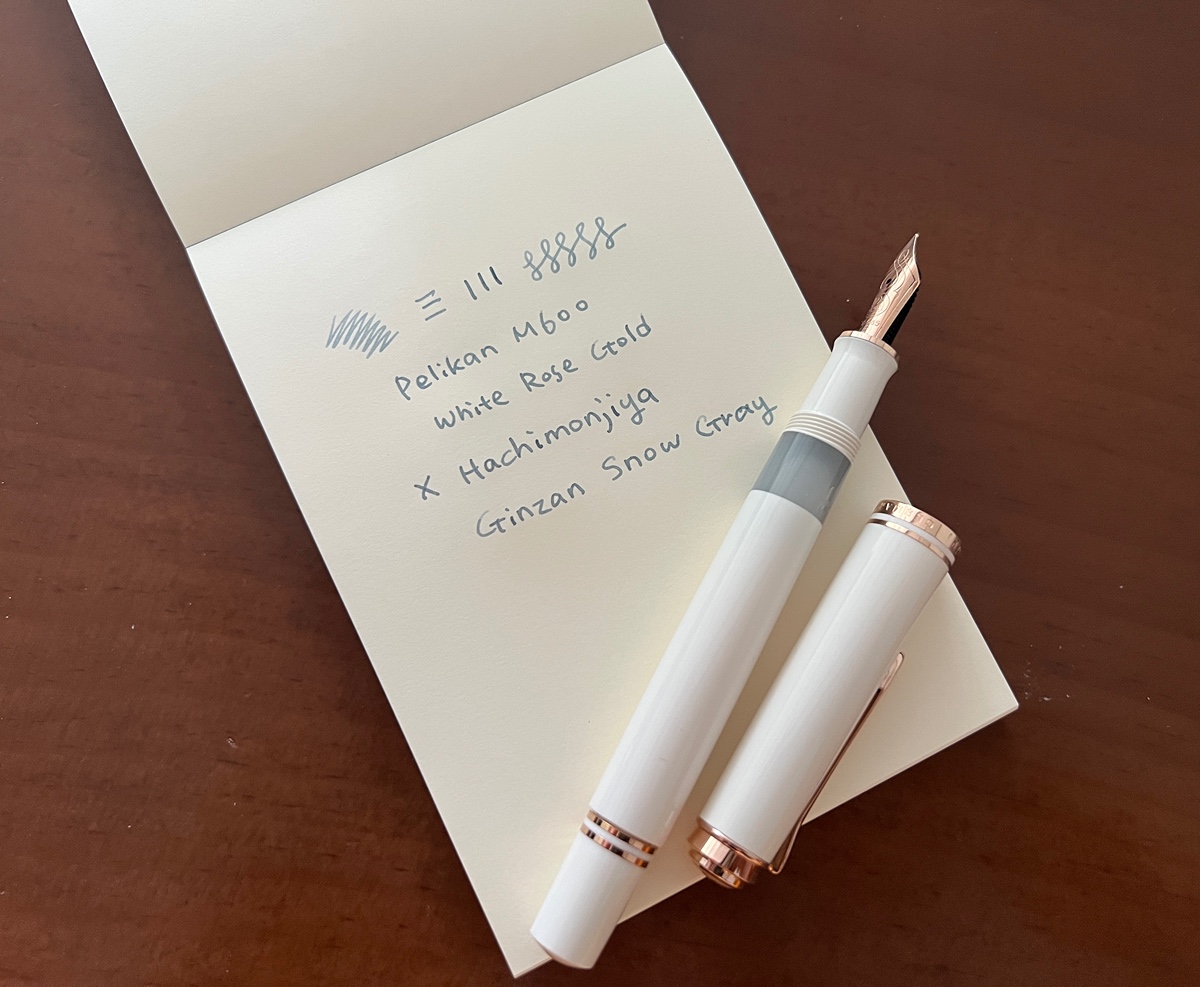 Pelikan M600
White Rose Gold
X Hachimonjiya
Ginzan Snow Gray